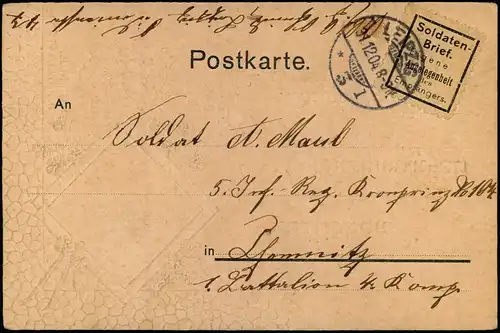 Postkarte.
Soldaten-
Brief.
Eigene
Angelegenheit
des
Empfängers.
LEIPZIG
12.04.8-9
* 5 1
An
Soldat A. Maul
5. Inf. Reg. Kronprinz No 104
in Chemnitz
1. Battalion 4. Komp.